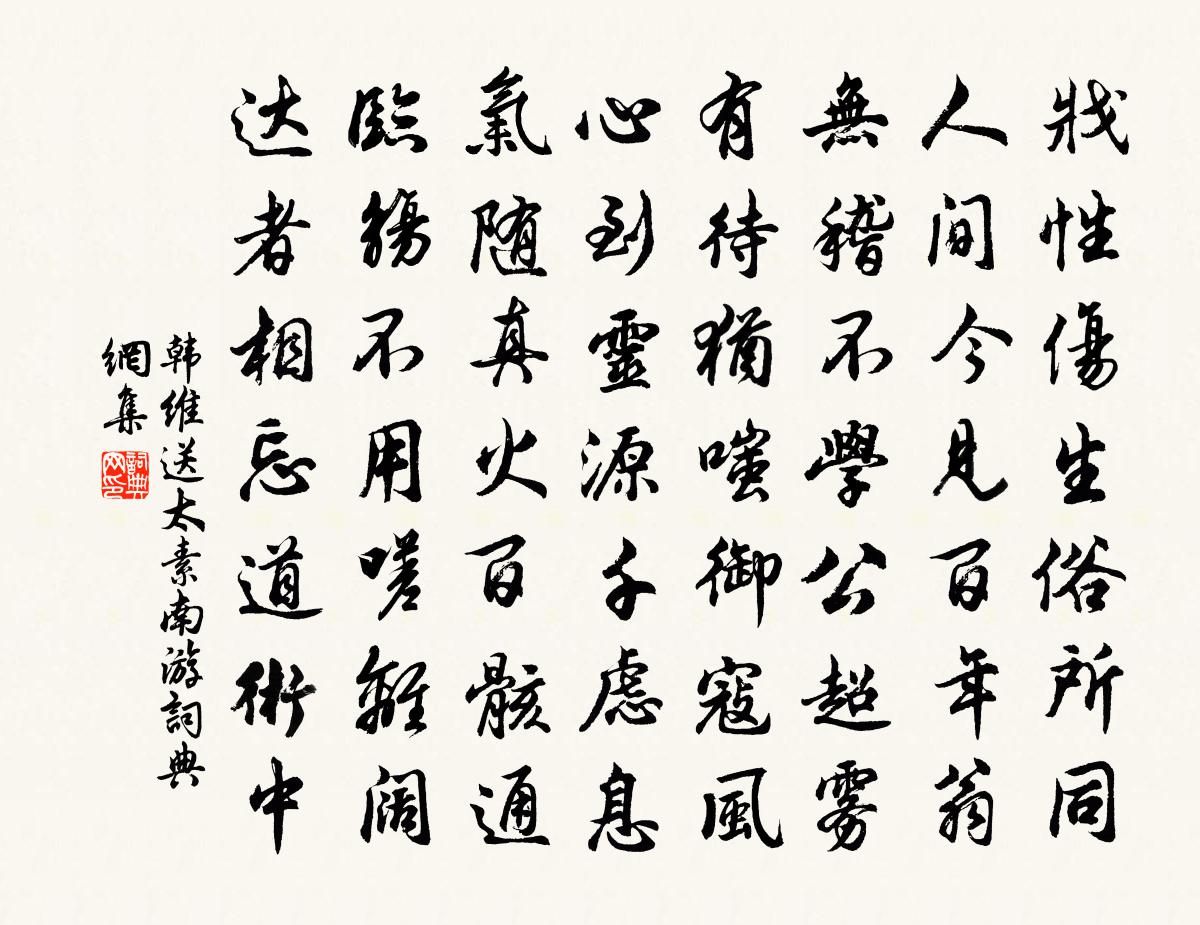 戕性傷生俗所同
人间今见百年翁
無稽不學公超雾
有待猶嗤御寇風
心到靈源千慮息
氣随真火百骸通
臨觴不用嗟離阔
达者相忘道術中
韩维送太素南游詞典
網集
詞典网印